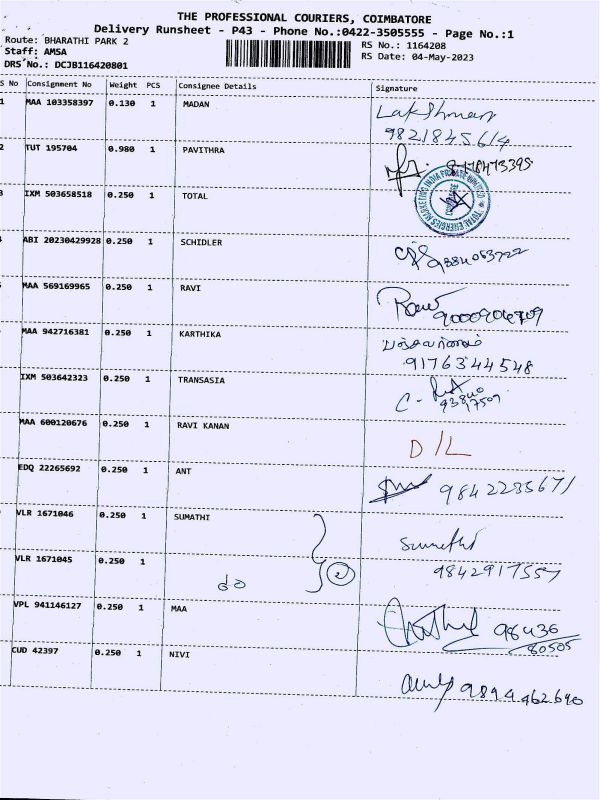 THE PROFESSIONAL COURIERS, COIMBATORE
Delivery Runsheet - P43 - Phone No.:0422-3505555 - Page No.:1
Route: BHARATHI PARK 2
RS No.: 1164208
Staff: AMSA
RS Date: 04-May-2023
DRS No.: DCJB116420801
S No Consignment No Weight PCS Consignee Details Signature
1 MAA 103358397 0.130 1 MADAN Lakshman
9821845614
2 TUT 195704 0.980 1 PAVITHRA
3 IXM 503658518 0.250 1 TOTAL
TOTAL ENERGIES MARKETING INDIA PRIVATE LIMITED
ABI 20230429928 0.250 1 SCHIDLER 9884053722
MAA 569169965 0.250 1 RAVI Ravi
MAA 942716381 0.250 1 KARTHIKA
9176344548
IXM 503642323 0.250 1 TRANSASIA
MAA 600120676 0.250 1 RAVI KANAN D/L
EDQ 22265692 0.250 1 ANT 9842235671
VLR 1671046 0.250 1 SUMATHI Sumathi
VLR 1671045 0.250 1 do 2 9842917557
VPL 941146127 0.250 1 MAA 98436
80505
CUD 42397 0.250 1 NIVI 9894462690